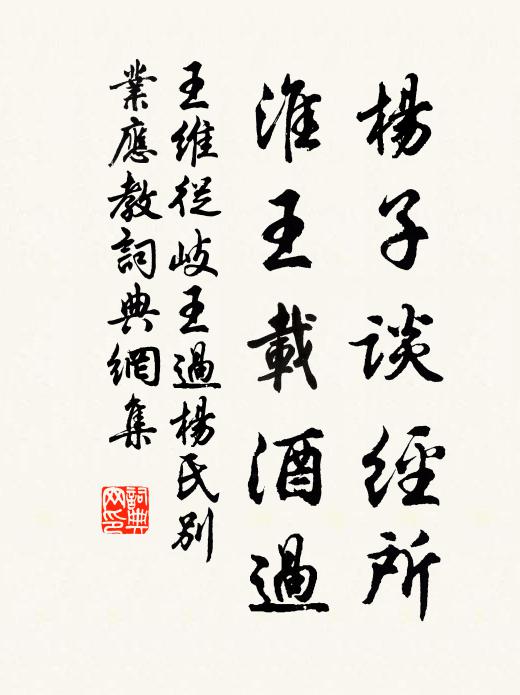 楊子談經所
淮王載酒過
王維從岐王過楊氏別
業應教詞典網集
詞典
网印